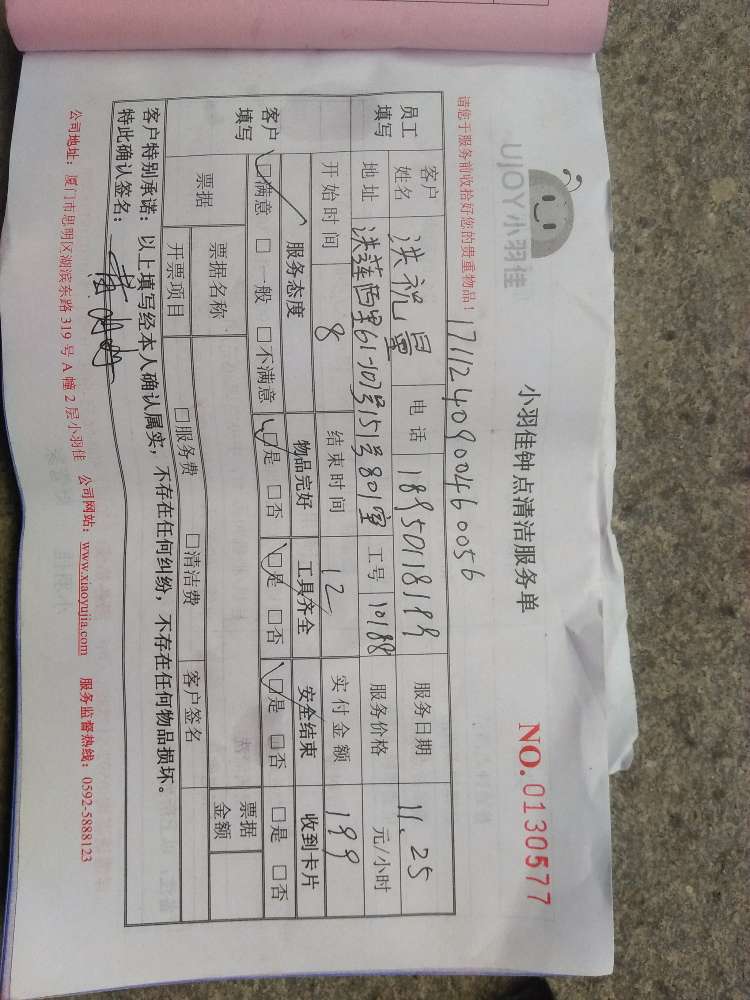 UJOY小羽佳
小羽佳钟点清洁服务单
NO. 0130577
请您于服务前收拾好您的贵重物品！
1711240900460056
员工填写 客户姓名 洪祝星 电话 18950118199 服务日期 11.25
地址 洪莲西里61-107号151号801室 工号 10188 服务价格 元/小时
开始时间 8 结束时间 12 实付金额 199
客户填写 服务态度 物品完好 工具齐全 安全结束 收到卡片
□满意 □一般 □不满意 □是 □否 □是 □否 □是 □否 □是 □否
票据 票据名称 票据金额
开票项目 □服务费 □清洁费 客户签名
客户特别承诺：以上填写经本人确认属实，不存在任何纠纷，不存在任何物品损坏。
特此确认签名：
公司地址：厦门市思明区湖滨东路 319 号 A 幢 2 层小羽佳 公司网站：www.xiaoyujia.com 服务监督热线：0592-5888123